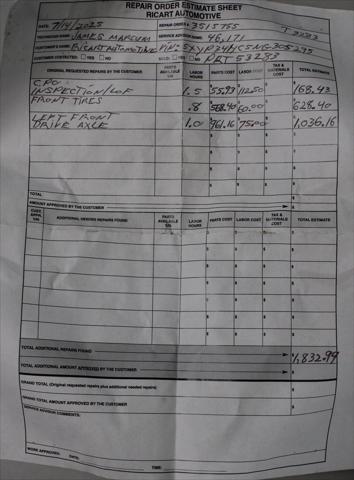 REPAIR ORDER ESTIMATE SHEET
RICART AUTOMOTIVE
DATE: 7/14/2025 REPAIR ORDER # 3515755 T 3233
TECHNICIAN NAME: JAMES MARCUM SERVICE ADVISOR 46,171
CUSTOMER'S NAME: RICART AUTOMOTIVE
CUSTOMER CONTACTED: YES NO SOLD: YES NO PRT 53293
ORIGINAL REQUESTED REPAIRS BY THE CUSTOMER PARTS AVAILABLE Y/N LABOR HOURS PARTS COST LABOR COST TAX & MATERIALS COST TOTAL ESTIMATE
CPO
INSPECTION/LOF 1.5 $55.93 112.50 $168.43
FRONT TIRES .8 $568.40 60.00 $628.40
LEFT FRONT
DRIVE AXLE 1.0 $961.16 75.00 $1,036.16
TOTAL
AMOUNT APPROVED BY THE CUSTOMER
CUST. APPR. Y/N ADDITIONAL NEEDED REPAIRS FOUND PARTS AVAILABLE Y/N LABOR HOURS PARTS COST LABOR COST TAX & MATERIALS COST TOTAL ESTIMATE
TOTAL ADDITIONAL REPAIRS FOUND $1,832.99
TOTAL ADDITIONAL AMOUNT APPROVED BY THE CUSTOMER
GRAND TOTAL (Original requested repairs plus additional needed repairs)
GRAND TOTAL AMOUNT APPROVED BY THE CUSTOMER
SERVICE ADVISOR COMMENTS:
WORK APPROVED: DATE: TIME: